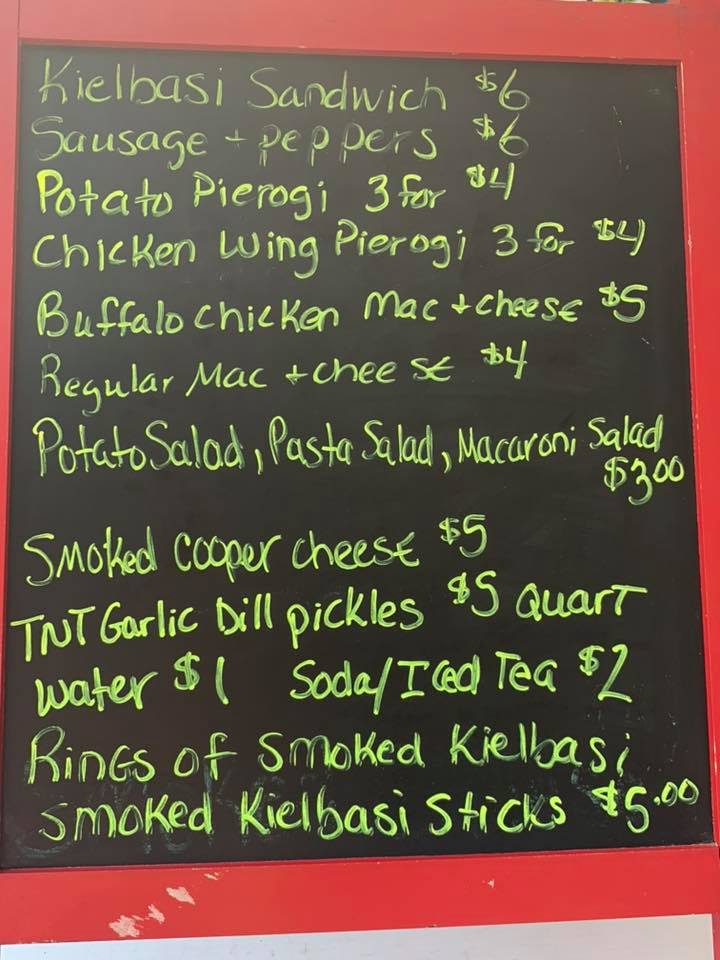 Kielbasi Sandwich $6
Sausage + peppers $6
Potato Pierogi 3 for $4
Chicken Wing Pierogi 3 for $4
Buffalo chicken Mac + cheese $5
Regular Mac + cheese $4
Potato Salad, Pasta Salad, Macaroni Salad
$3.00
Smoked cooper cheese $5
TNT Garlic Dill pickles $5 Quart
Water $1 Soda/Iced Tea $2
Rings of Smoked Kielbasi
Smoked Kielbasi Sticks $5.00